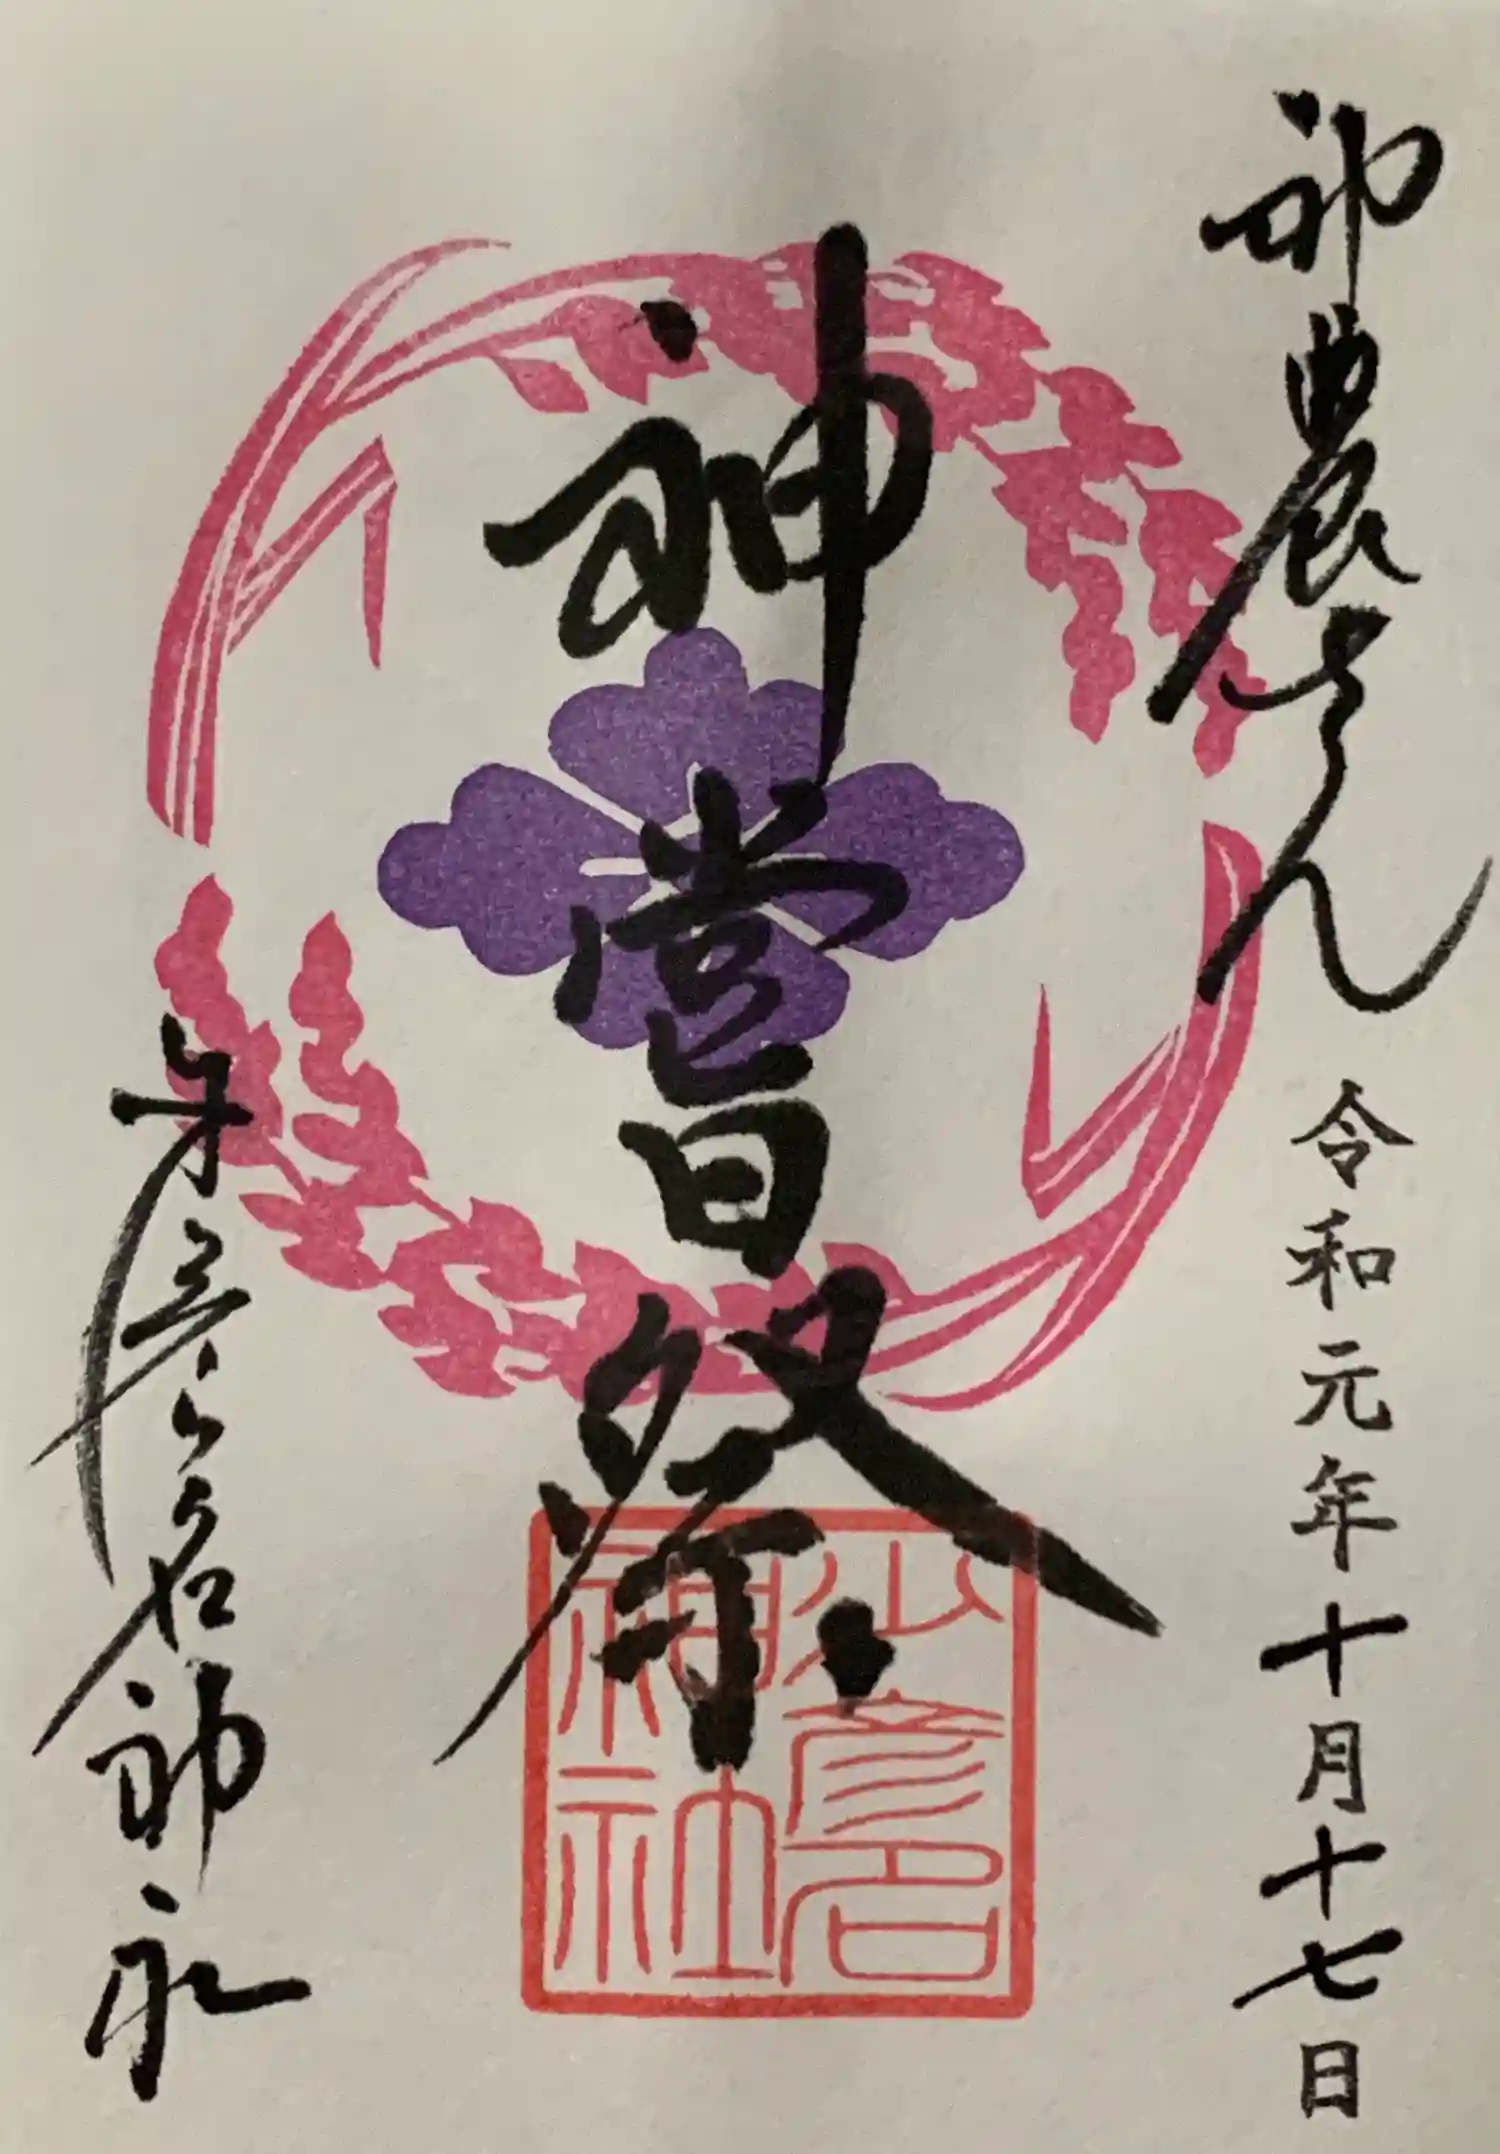 神農さん
令和元年十月十七日
神嘗祭
少彦名神社
少彦名神社